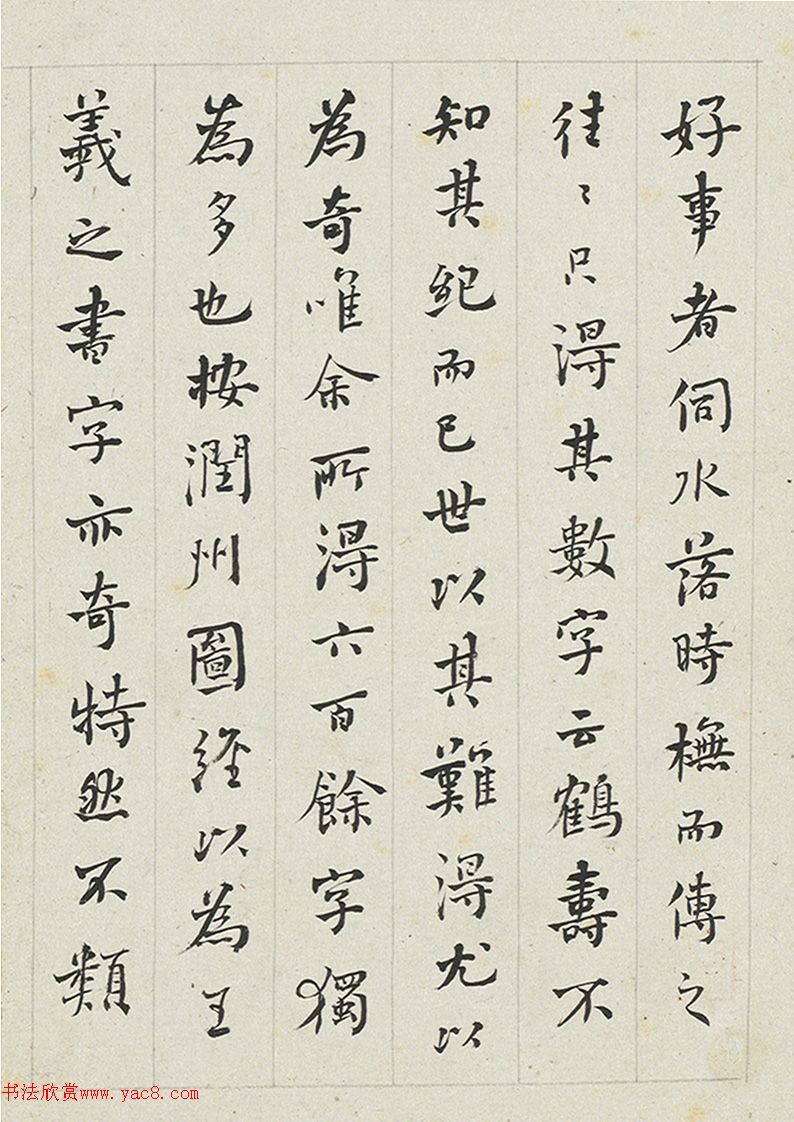 好事者伺水落時橅而傳之
往〻只淂其數字云鶴壽不
知其紀而已世以其難淂尤以
為奇唯余所淂六百餘字獨
為多也桉潤州圖經以為王
羲之書字亦奇特然不類
书法欣赏www.yac8.com